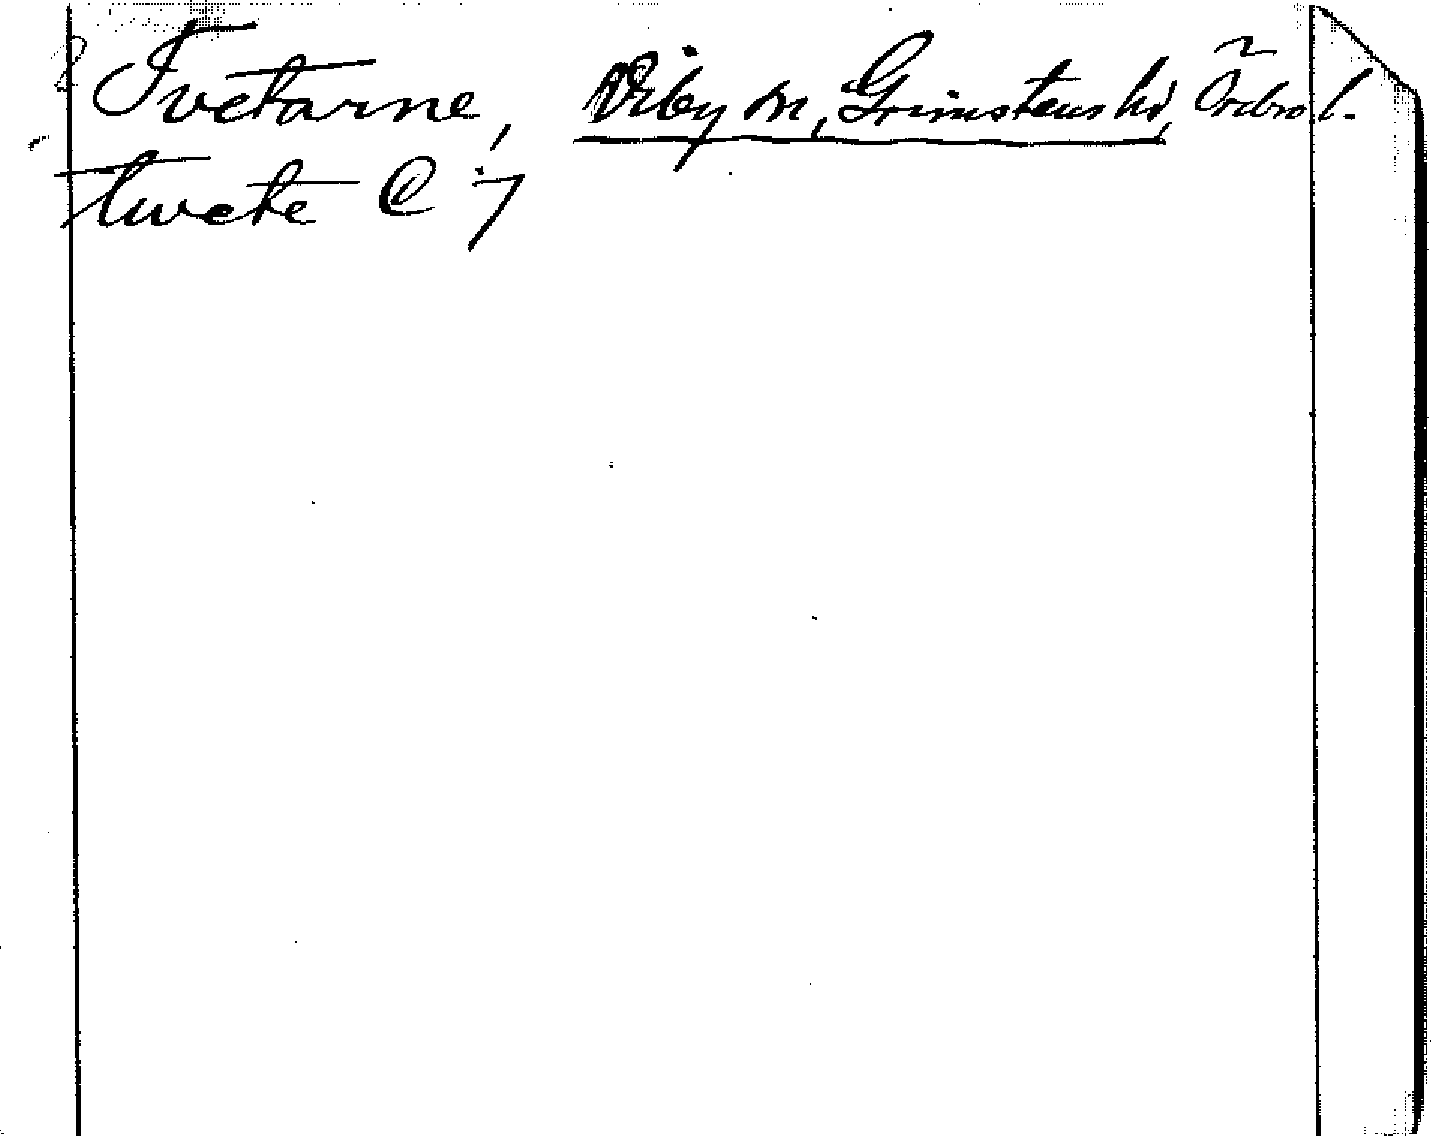 Tvetarne, Viby sn, Grimstens hd, Örebro l.
Twete C 7